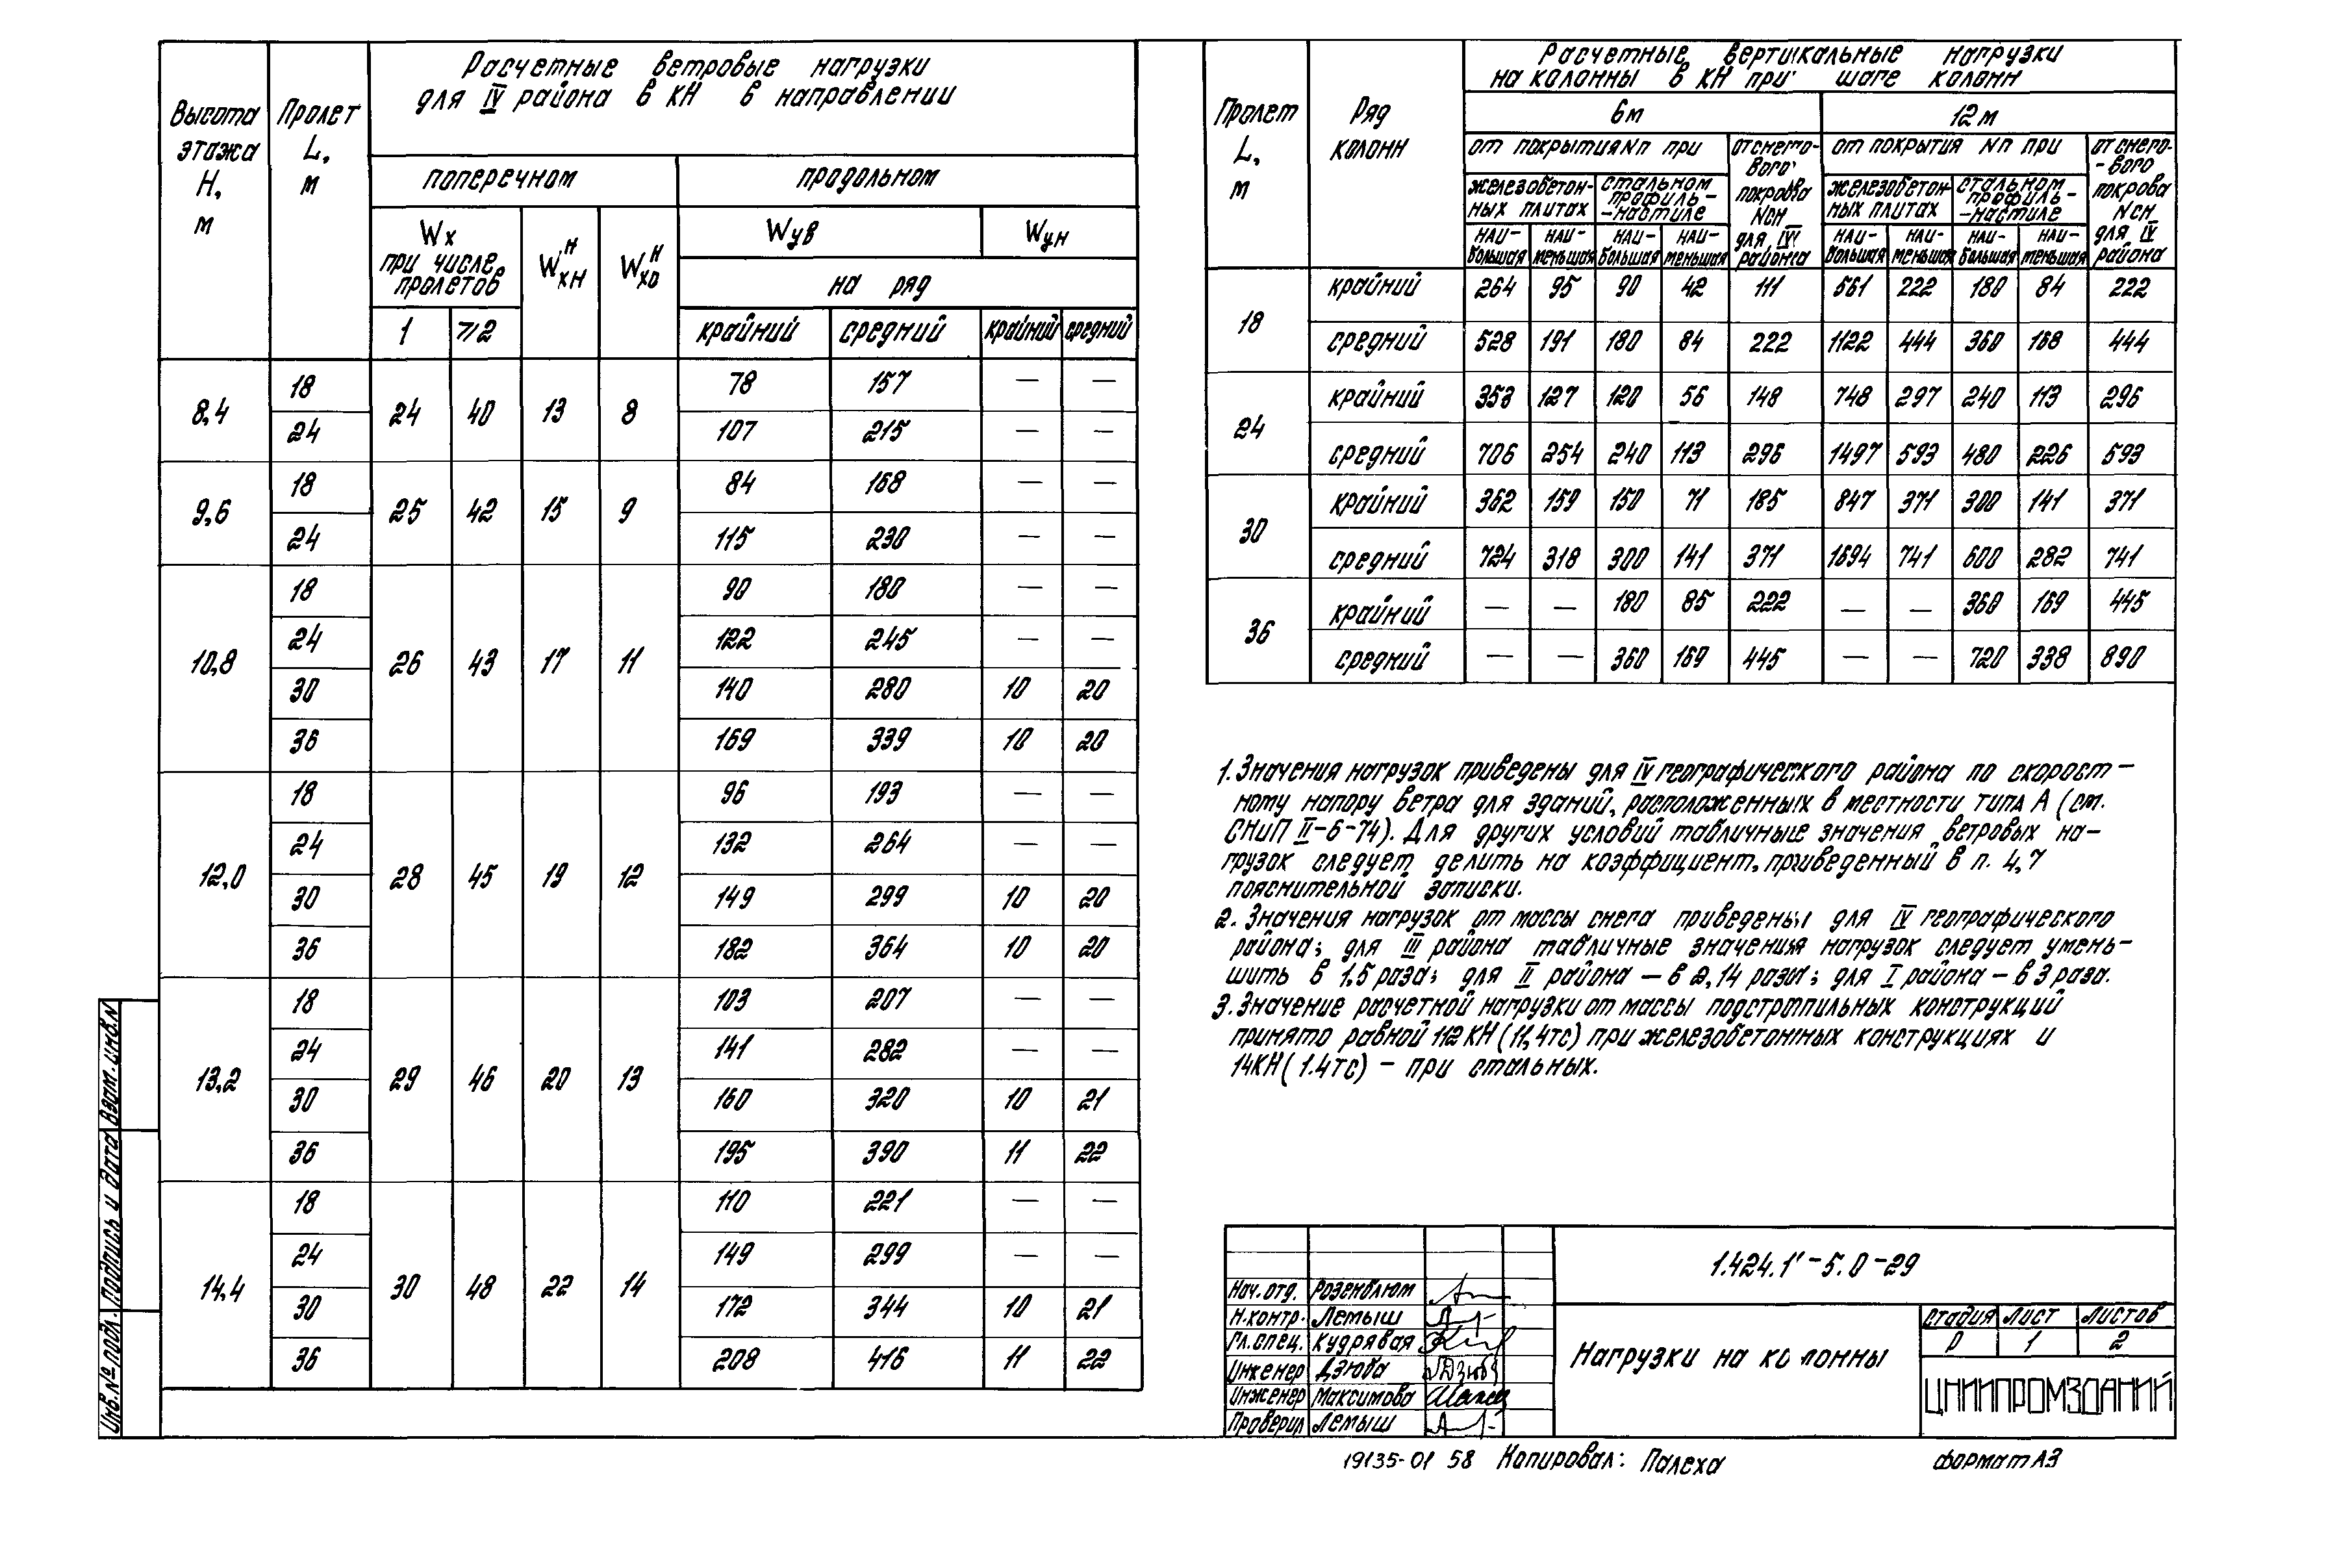 Расчетные ветровые нагрузки
для IV района в кН в направлении
Высота этажа Н, м
Пролет L, м
поперечном продольном
Wх при числе пролетов
Wхн^н Wхо^н
Wув Wун
на ряд
1 ≥2 крайний средний крайний средний
8,4 18 24 40 13 8 78 157 — —
24 107 215 — —
9,6 18 25 42 15 9 84 168 — —
24 115 230 — —
10,8 18 26 43 17 11 90 180 — —
24 122 245 — —
30 140 280 10 20
36 169 339 10 20
12,0 18 28 45 19 12 96 193 — —
24 132 264 — —
30 149 299 10 20
36 182 364 10 20
13,2 18 29 46 20 13 103 207 — —
24 141 282 — —
30 160 320 10 21
36 195 390 11 22
14,4 18 30 48 22 14 110 221 — —
24 149 299 — —
30 172 344 10 21
36 208 416 11 22
Пролет L, м
Ряд колонн
Расчетные вертикальные нагрузки
на колонны в кН при шаге колонн
6м 12м
от покрытия Nп при от снего-вого покрова Nсн для IV района от покрытия Nп при от снего-вого покрова Nсн для IV района
железобетон-ных плитах стальном профиль-настиле железобетон-ных плитах стальном профиль-настиле
наи-большая наи-меньшая наи-большая наи-меньшая наи-большая наи-меньшая наи-большая наи-меньшая
18 крайний 264 95 90 42 111 561 222 180 84 222
средний 528 191 180 84 222 1122 444 360 168 444
24 крайний 353 127 120 56 148 748 297 240 113 296
средний 706 254 240 113 296 1497 593 480 226 593
30 крайний 362 159 150 71 185 847 371 300 141 371
средний 724 318 300 141 371 1694 741 600 282 741
36 крайний — — 180 85 222 — — 360 169 445
средний — — 360 169 445 — — 720 338 890
1. Значения нагрузок приведены для IV географического района по скорост-
ному напору ветра для зданий, расположенных в местности типа А (см.
СНиП II-6-74). Для других условий табличные значения ветровых на-
грузок следует делить на коэффициент, приведенный в п. 4,7
пояснительной записки.
2. Значения нагрузок от массы снега приведены для IV географического
района; для III района табличные значения нагрузок следует умень-
шить в 1,5 раза; для II района — в 2,14 раза; для I района — в 3 раза.
3. Значение расчетной нагрузки от массы подстропильных конструкций
принято равной 112 кН (11,4тс) при железобетонных конструкциях и
14кН (1.4тс) — при стальных.
Взам. инв. N
Подпись и дата
Инв. № подл.
1.424.1-5.0-29
Нач. отд. Розенблюм
Н. контр. Лемыш
Гл. спец. Кудрявая
Инженер Дзюба
Инженер Максимова
Проверил Лемыш
Нагрузки на колонны
Стадия Лист Листов
Р 1 2
ЦНИИПРОМЗДАНИЙ
19135-01 58 Копировал: Палеха формат А3